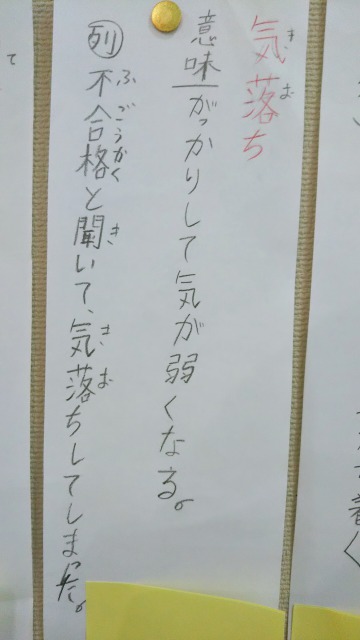 気落ち
意味 がっかりして気が弱くなる。
列 不合格と聞いて、気落ちしてしまった。